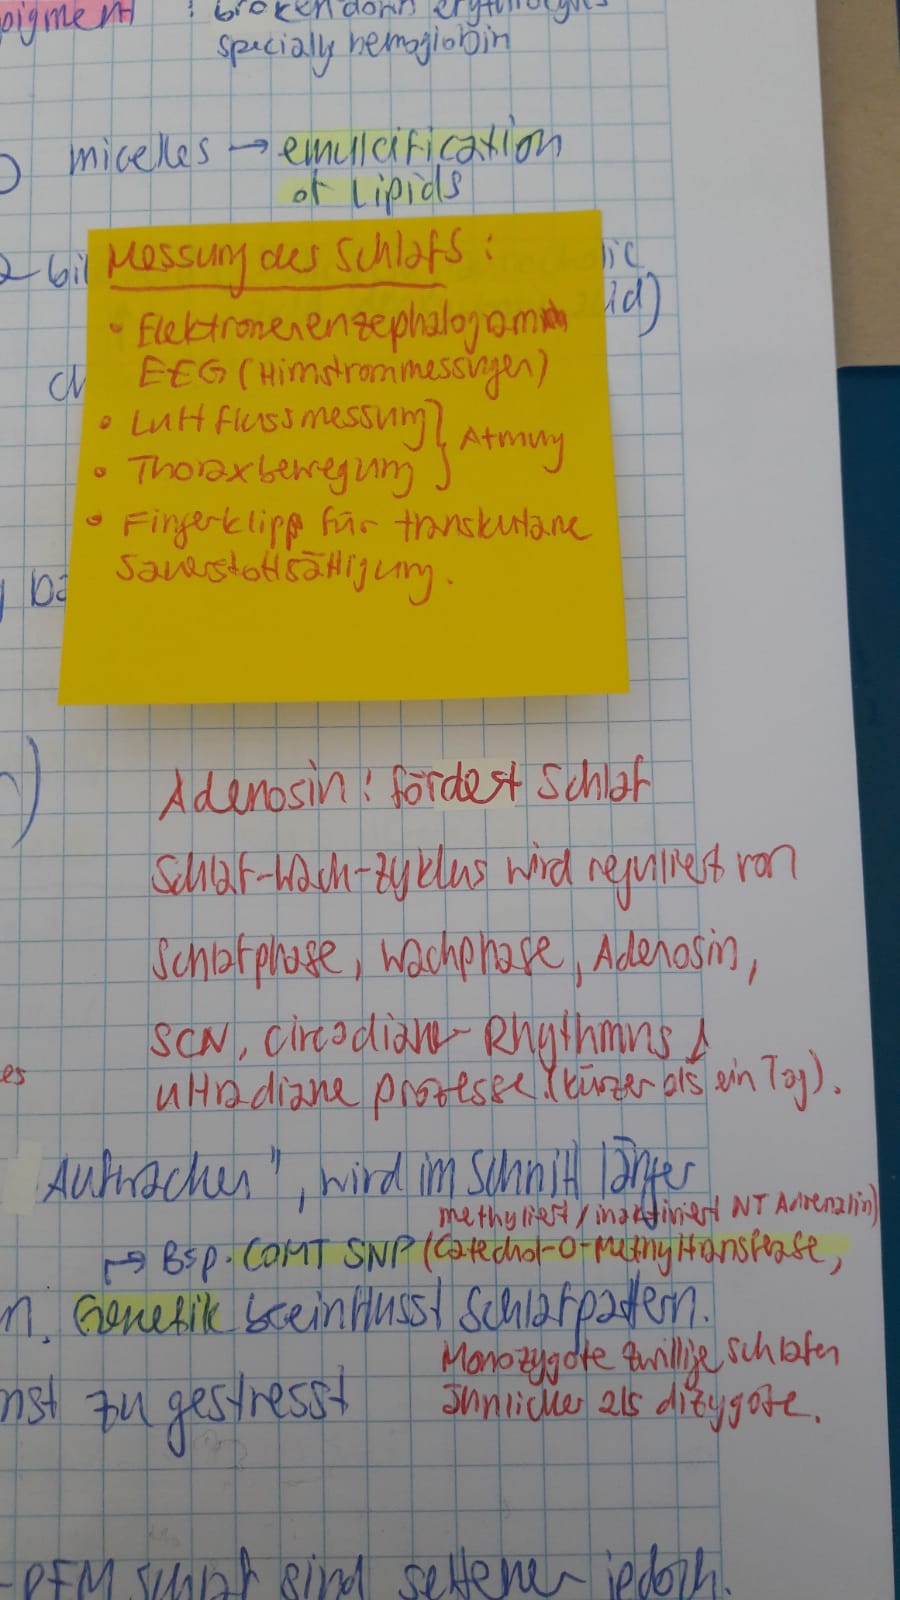 pigment : broken down erythrocytes
specially hemoglobin
micelles → emulcification
of Lipids
Messung des Schlafs:
• Elektroenenzephalogramm
EEG (Hirnstrommessungen)
• Luftflussmessung } Atmung
• Thoraxbewegung
• Fingerklipp für transkutane
Sauerstoffsättigung.
Adenosin: fördert Schlaf
Schlaf-Wach-Zyklus wird reguliert von
Schlafphase, Wachphase, Adenosin,
SCN, circadianer Rhythmus,
es
ultradiane prozesse (kürzer als ein Tag).
Aufwachen", wird im Schnitt länger
methyliert/inaktiviert NT Adrenalin)
↦ Bsp. COMT SNP (Catechol-O-Methyltransferase,
n. Genetik beeinflusst Schlafpattern.
Monozygote Zwillige schlafen
nst zu gestresst
ähnlicher als dizygote.
schlaf sind seltener jedoch.